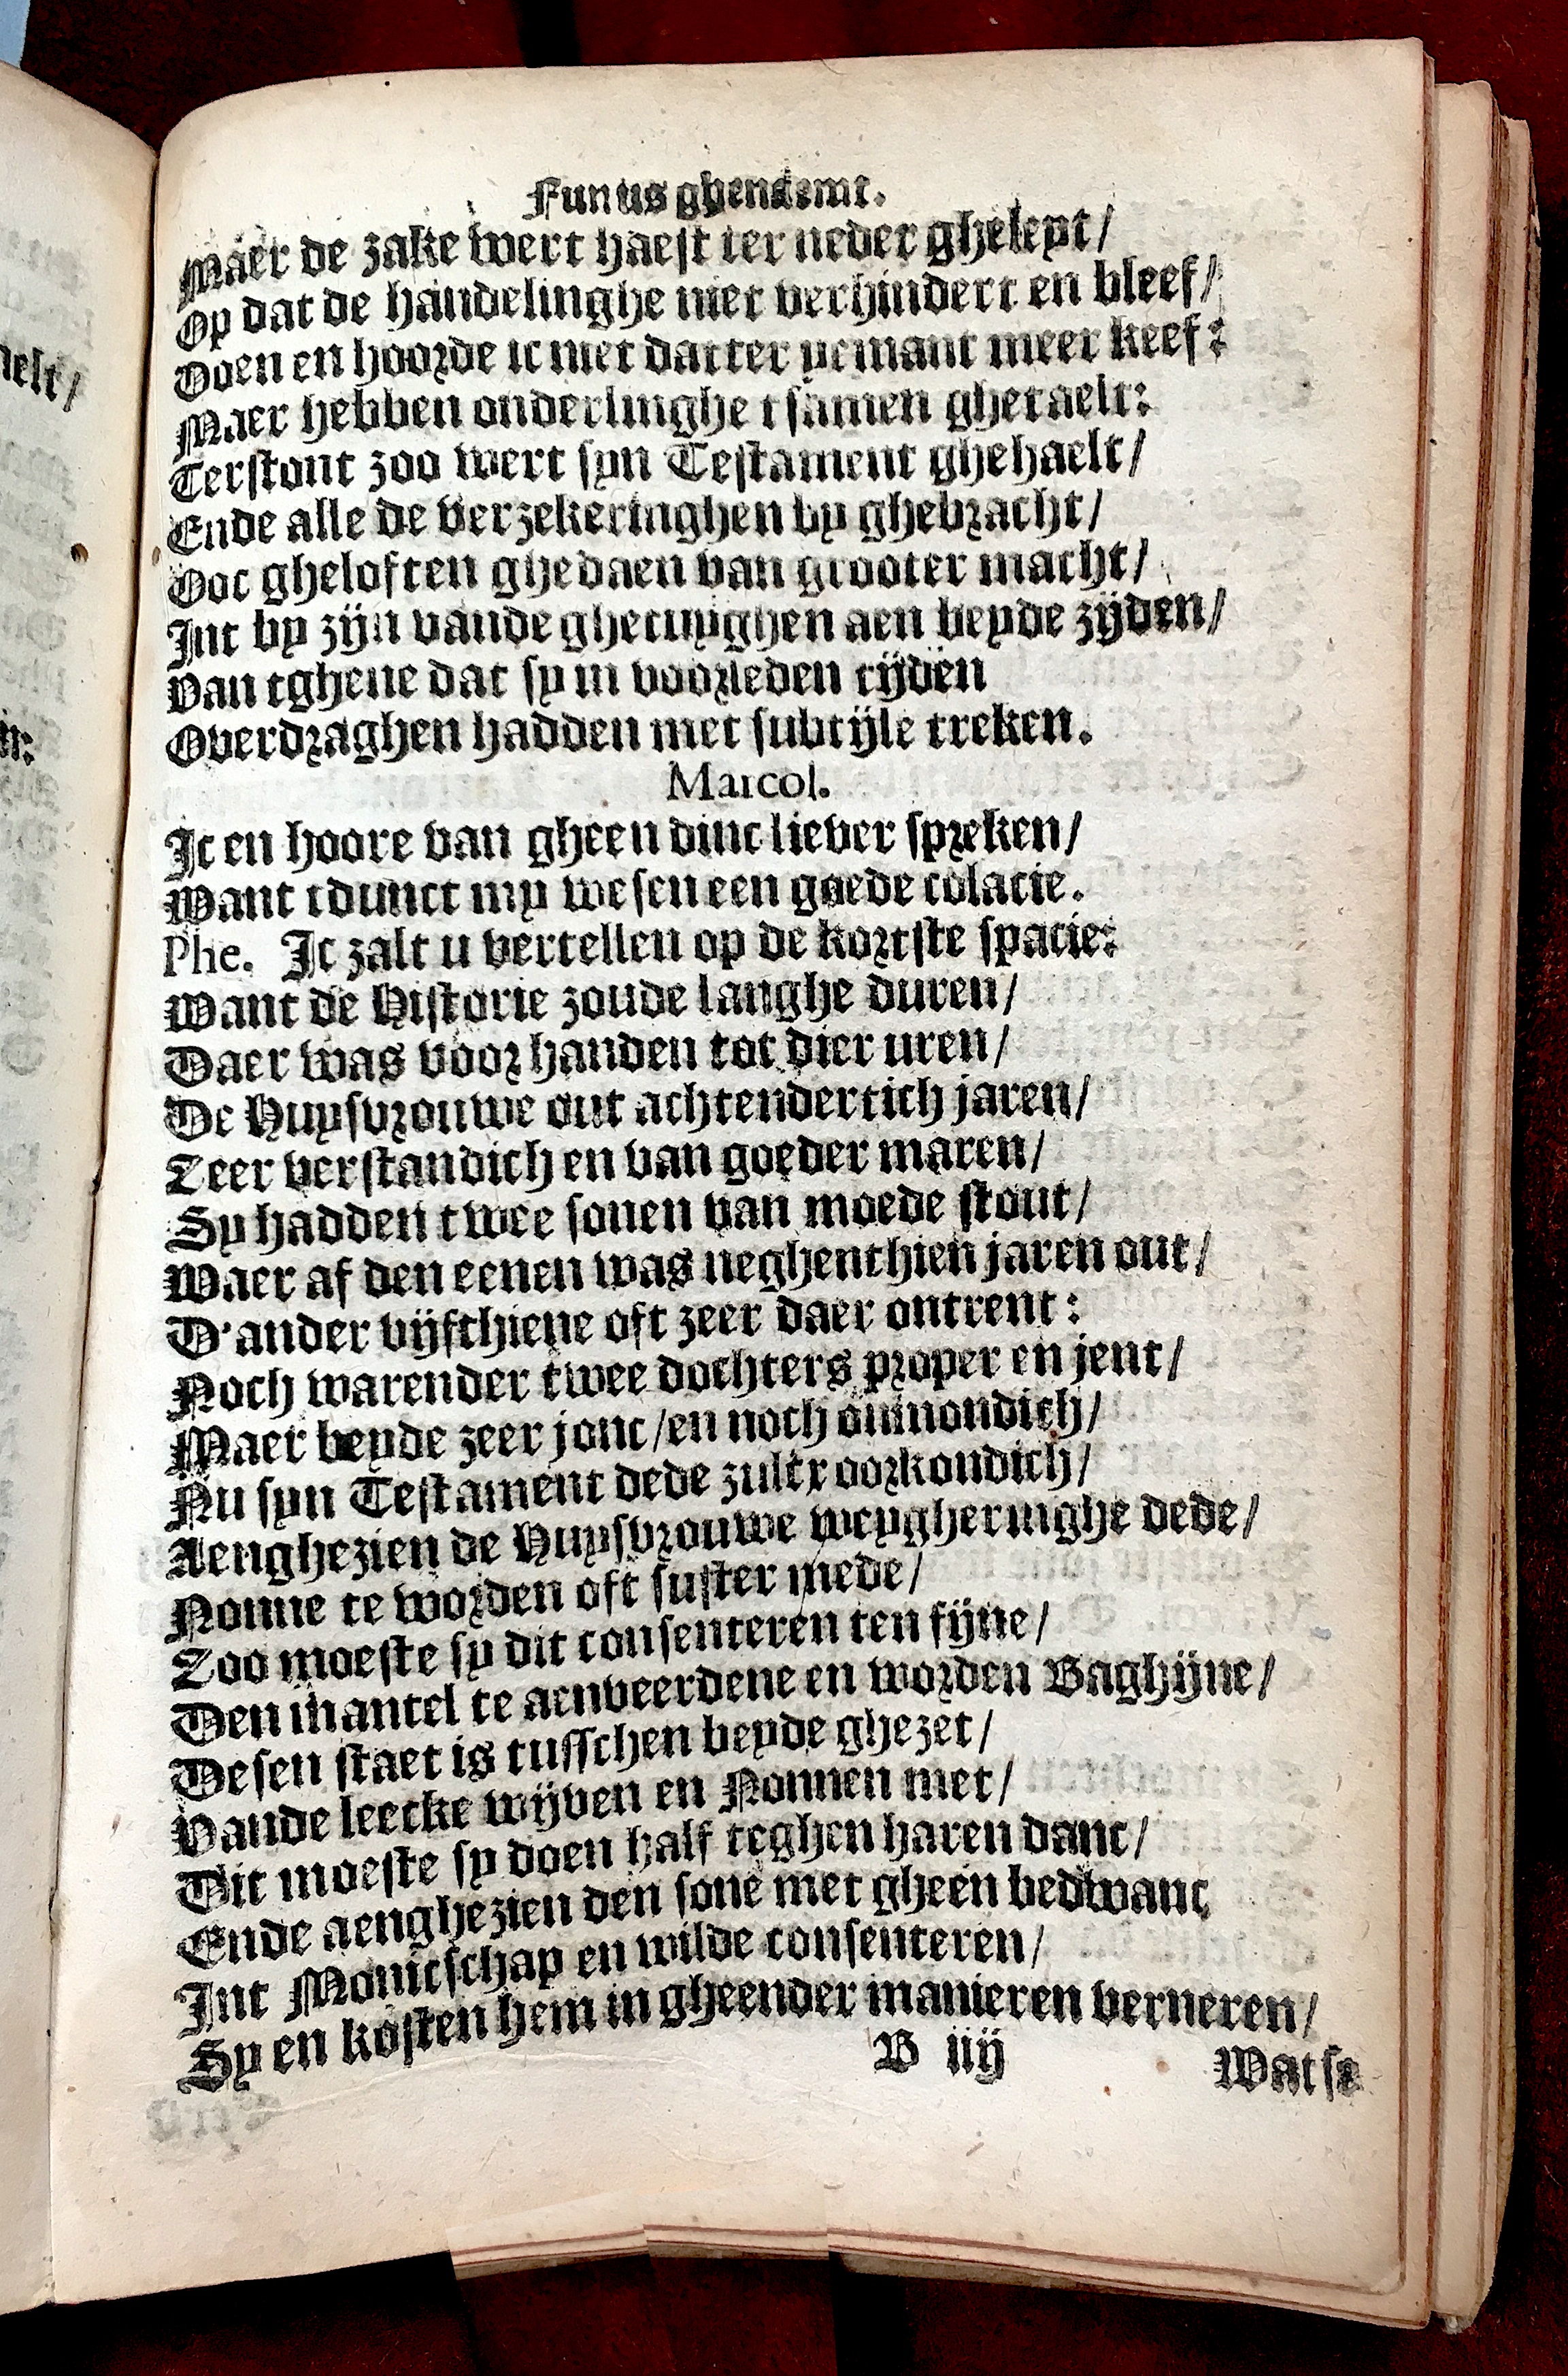 Funus ghenaemt.
Maer de zake wert haest ter neder gheleyt/
Op dat de handelinghe niet verhindert en bleef/
Doen en hoorde ic niet datter yemant meer keef:
Maer hebben onderlinghe tsamen ghetaelt:
Terstont zoo wert syn Testament ghehaelt/
Ende alle de verzekeringhen by ghebracht/
Ooc gheloften ghedaen van grooter macht/
Int by zijn vande ghetuyghen aen beyde zijden/
Van tghene dat sy in voorleden tijden
Overdraghen hadden met subtijle treken.
Marcol.
Ic en hoore van gheen dinc liever spreken/
Want tdunct my wesen een goede colacie.
Phe. Ic zalt u vertellen op de kortste spacie:
Want de Historie zoude langhe duren/
Daer was voor handen tot dier uren/
De Huysvrouwe out achtendertich jaren/
Zeer verstandich en van goeder maren/
Sy hadden twee sonen van moede stout/
Waer af den eenen was neghenthien jaren out/
D'ander vijfthiene oft zeer daer ontrent:
Noch warender twee dochters proper en jent/
Maer beyde zeer jonc/en noch onmondich/
Nu syn Testament dede zulcx oorkondich/
Aenghezien de Huysvrouwe weygheringhe dede/
Nonne te worden oft suster mede/
Zoo moeste sy dit consenteren ten fijne/
Den mantel te aenveerdene en worden Baghijne/
Desen staet is tusschen beyde ghezet/
Vande leecke wijven en Nonnen met/
Dit moeste sy doen half teghen haren danc/
Ende aenghezien den sone met gheen bedwanc
Int Monicschap en wilde consenteren/
Sy en kosten hem in gheender manieren verneren/
B iiij
Wat se
nelt/